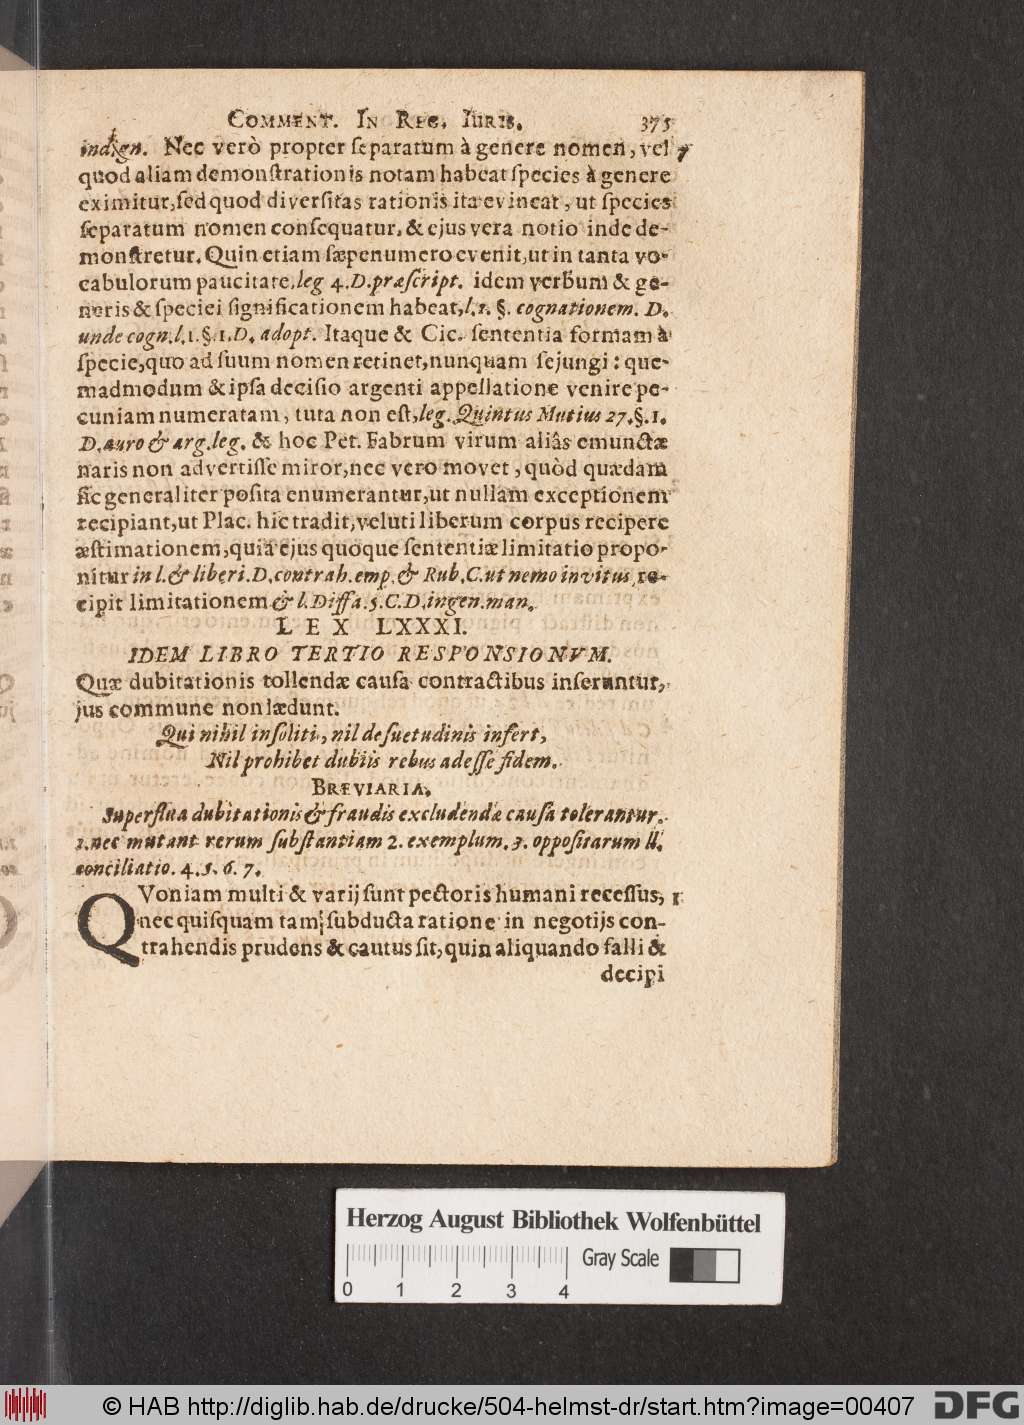 COMMENT. IN REG. IURIS. 375
indign. Nec verò propter separatum à genere nomen, vel 7
quod aliam demonstrationis notam habeat species à genere
eximitur, sed quod diversitas rationis ita evincat, ut species
separatum nomen consequatur, & ejus vera notio inde de-
monstretur. Quin etiam sæpenumero evenit, ut in tanta vo-
cabulorum paucitate, leg 4. D. præscript. idem verbum & ge-
neris & speciei significationem habeat, l. 1. §. cognationem. D.
unde cogn. l. 1. §. 1. D. adopt. Itaque & Cic. sententia formam à
specie, quo ad suum nomen retinet, nunquam sejungi: que-
madmodum & ipsa decisio argenti appellatione venire pe-
cuniam numeratam, tuta non est, leg. Quintus Mutius 27. §. 1.
D. auro & arg. leg. & hoc Pet. Fabrum virum aliâs emunctæ
naris non advertisse miror, nec vero movet, quòd quædam
sic generaliter posita enumerantur, ut nullam exceptionem
recipiant, ut Plac. hic tradit, veluti liberum corpus recipere
æstimationem, quia ejus quoque sententiæ limitatio propo-
nitur in l. & liberi. D. contrah. emp. & Rub. C. ut nemo invitus, re-
cipit limitationem & l. Diffa. 5. C. D. ingen. man.
LEX LXXXI.
IDEM LIBRO TERTIO RESPONSIONVM.
Quæ dubitationis tollendæ causa contractibus inseruntur,
jus commune non lædunt.
Qui nihil insoliti, nil desuetudinis infert,
Nil prohibet dubiis rebus adesse fidem.
BREVIARIA.
Superflua dubitationis & fraudis excludendæ causa tolerantur.
1. nec mutant rerum substantiam 2. exemplum. 3. oppositarum ll.
conciliatio. 4. 5. 6. 7.
QVoniam multi & varij sunt pectoris humani recessus, 1
nec quisquam tam subducta ratione in negotijs con-
trahendis prudens & cautus sit, quin aliquando falli &
decipi
Herzog August Bibliothek Wolfenbüttel
Gray Scale
0 1 2 3 4
© HAB http://diglib.hab.de/drucke/504-helmst-dr/start.htm?image=00407 DFG